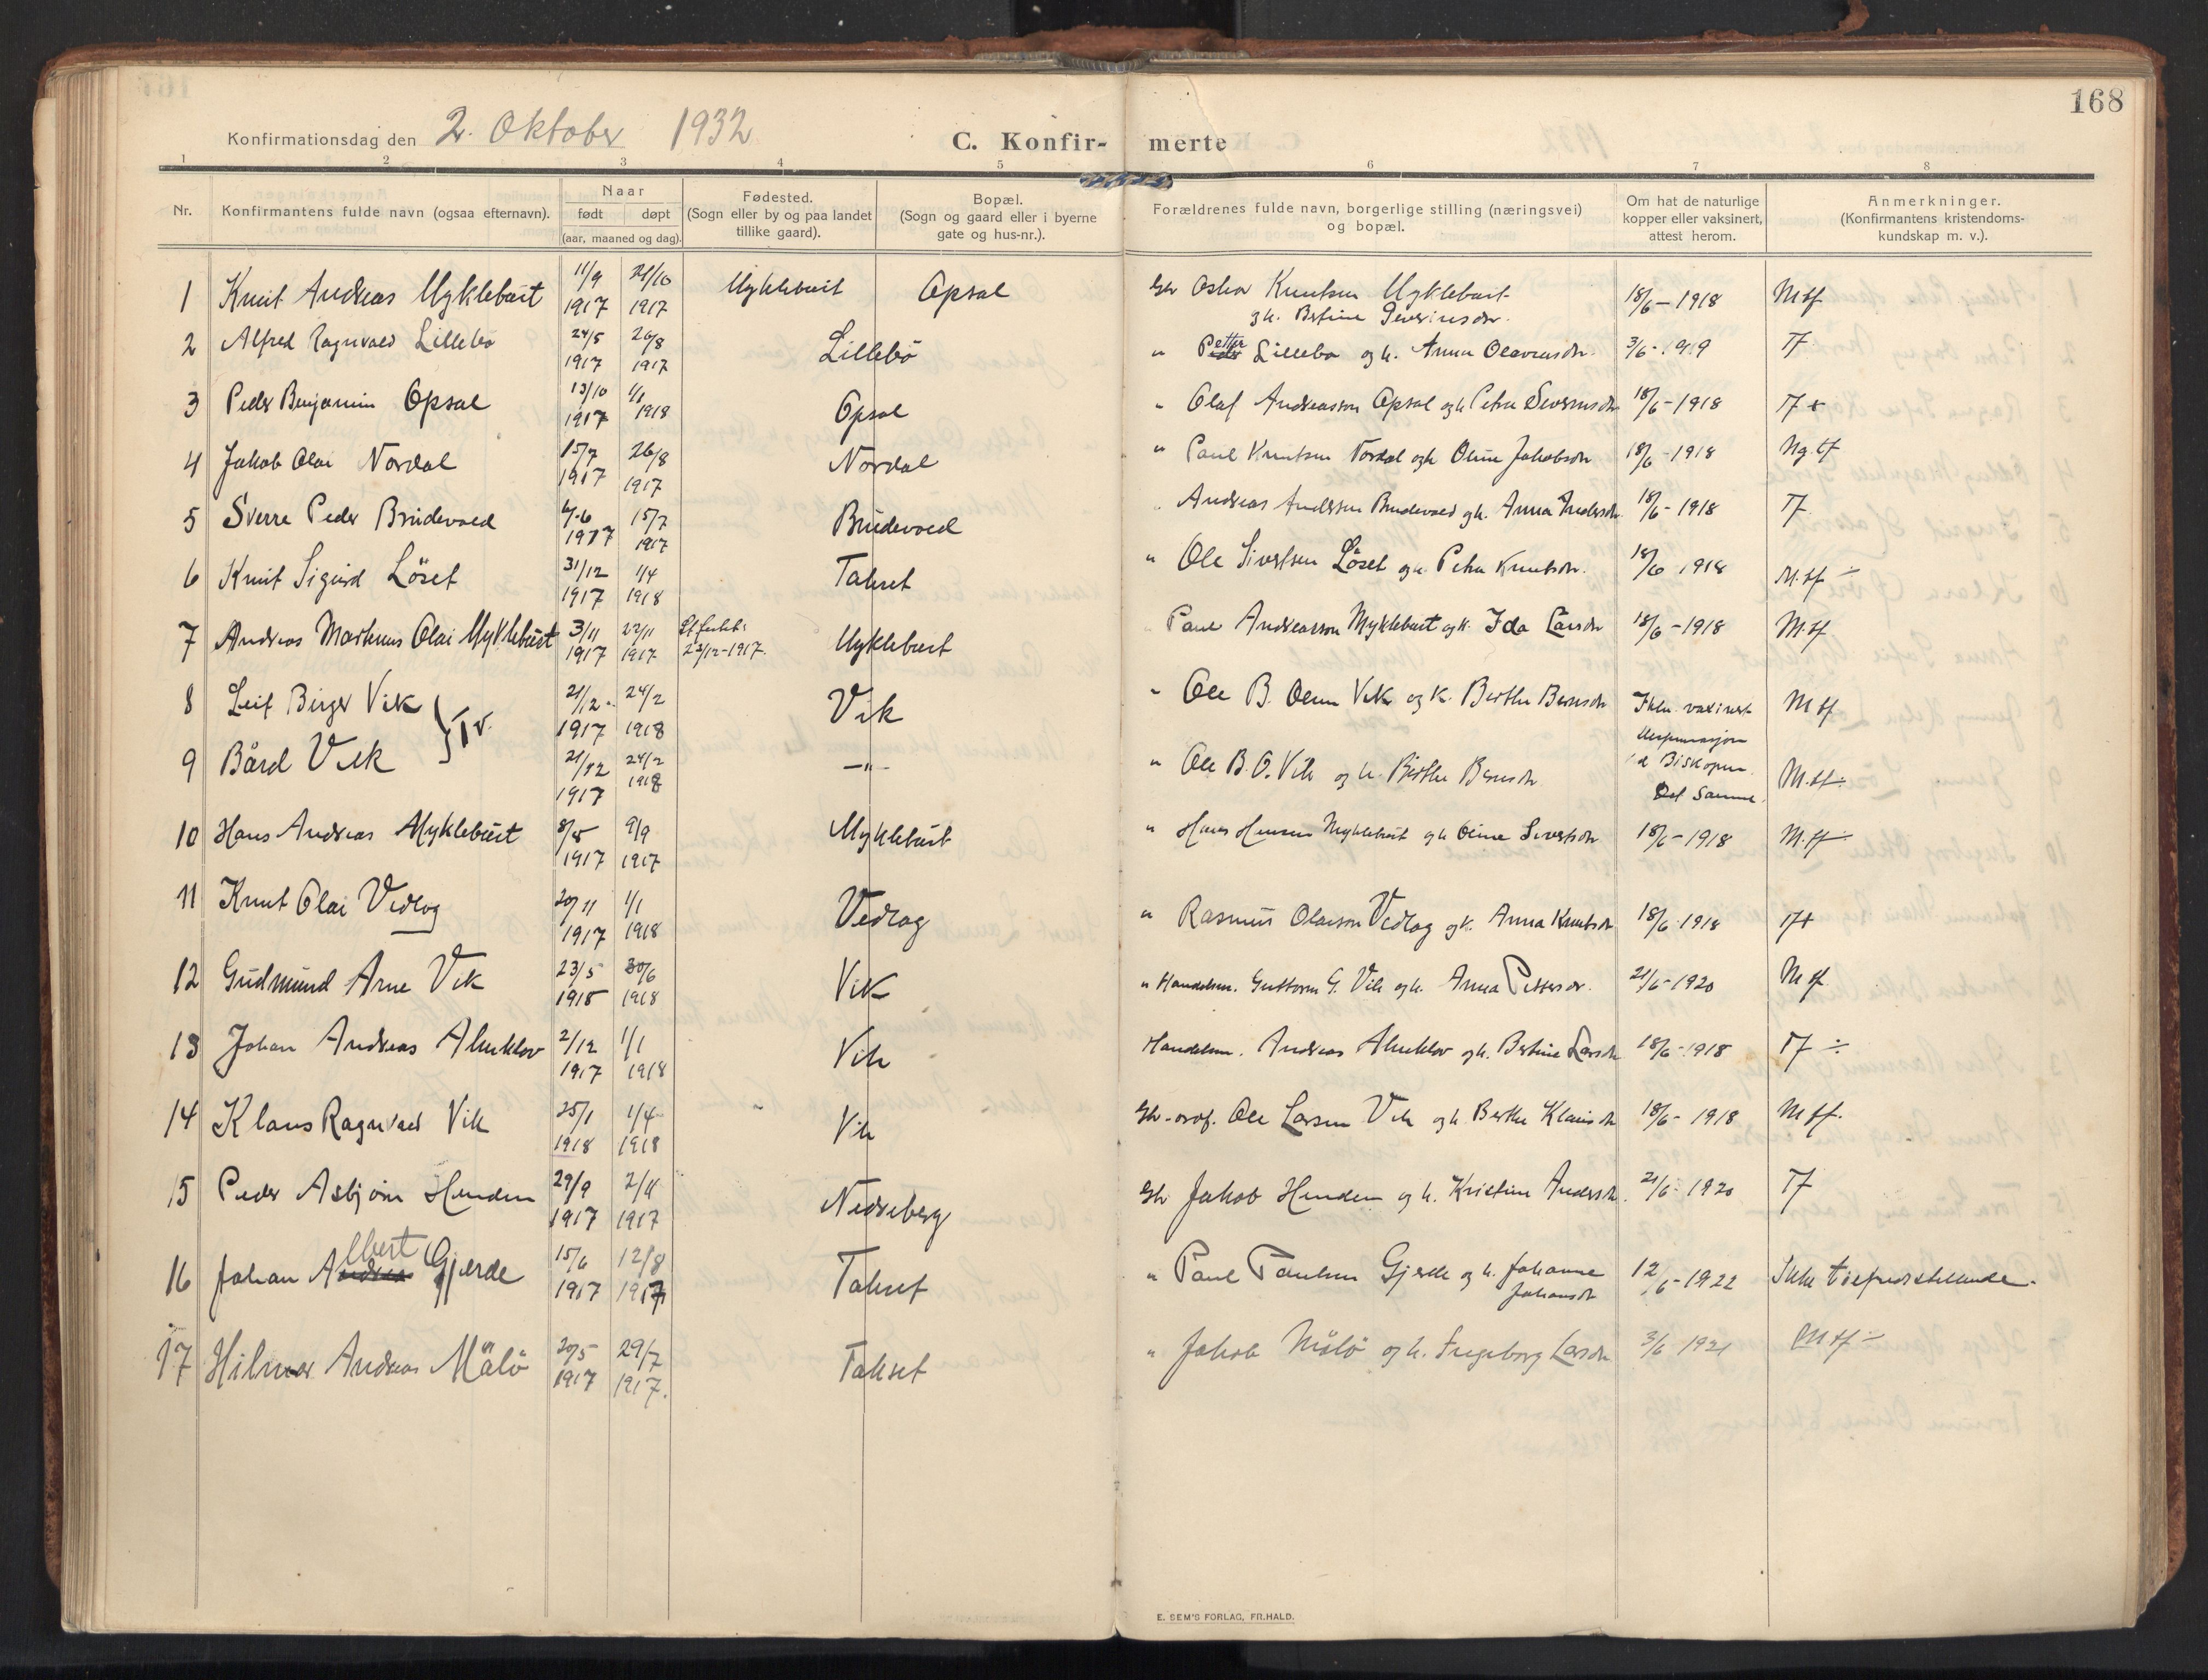 168
Konfirmationsdag den 2. Oktober 1932
C. Konfir- merte
1 2 3 4 5 6 7 8
Nr. Konfirmantens fulde navn (ogsaa efternavn). Naar født døpt (aar, maaned og dag). Fødested. (Sogn eller by og paa landet tillike gaard). Bopæl. (Sogn og gaard eller i byerne gate og hus-nr.). Forældrenes fulde navn, borgerlige stilling (næringsvei) og bopæl. Om hat de naturlige kopper eller vaksinert, attest herom. Anmerkninger. (Konfirmantens kristendoms-kundskap m. v.).
1 Knut Andreas Myklebust 11/9 1917 21/10 1917 Myklebust Opsal Gbr Oskar Knutsen Myklebust 18/6-1918 Mtf
og k. Bertine Severinsdr.
2 Alfred Ragnvald Lillebø 24/5 1917 26/8 1917 Lillebö " Petter Lillebø og k. Anna Olavensdr. 3/6-1919 Tf
3 Peder Benjamin Opsal 13/10 1917 1/1 1918 Opsal " Olaf Andreasson Opsal og k Petra Severinsdr 18/6-1918 Tf+
4 Jakob Olai Nordal 15/7 1917 26/8 1917 Nordal " Paul Knutsen Nordal og k Oline Jakobsdr 18/6-1918 Ng tf
5 Sverre Peder Brüdevold 4/6 1917 15/7 1917 Brüdevold " Andreas Andersen Brudevold og k. Anna Andersdr 18/6-1918 Tf
6 Knut Sigurd Löset 31/12 1917 1/4 1918 Takset " Ole Sivertsen Löset og k. Petra Knutsdr. 18/6 1918 M.tf ÷
7 Andreas Martinus Olai Myklebüst 3/11 1917 22/11 1917 Stfestet 23/12-1917. Myklebust " Paul Andreasson Myklebust og k. Ida Larsdr 18/6-1918 M.tf
8 Leif Birger Vik } Tv. 21/12. 1917 24/2 1918 Vik " Ole B. Olsen Vik og k. Berthe Bernsdr Ikke vaxinert Mtf
9 Bård Vik 21/12 1917 24/2 1918 —"— " Ole B. O. Vik og k. Berthe Bernsdr Dispensasjon Biskopen. Det samme. M.tf ÷
10 Hans Andreas Myklebüst 8/8 1917 9/9 1917 Myklebust " Hans Hansen Myklebust og k Oline Sivertsdr 18/6-1918 M.tf ÷
11 Knut Olai Vedlog 20/11 1917 1/1 1918 Vedlog " Rasmus Olaison Vedlog og k. Anna Knutsdr 18/6 1918 Tf+
12 Güdmünd Arne Vik 23/5 1918 30/6 1918 Vik " Handelsm. Guttorm G. Vik og k. Anna Pettersdr. 21/6-1920 Mtf
13 Johan Andreas Almklov 2/12 1917 1/1 1918 Vik Handelsm. Andreas Almklov og k. Bertine Larsdr 18/6-1918 Tf ÷
14 Klaus Ragnvald Vik 25/1 1918 1/4 1918 " Vik Gbr-orof. Ole Larsen Vik og k Berthe Klausdr 18/6-1918 M tf.
15 Peder Asbjörn Henden 29/9 1917 2/4 1917 Nedreberg Gbr Jakob Henden og k. Kristine Andersdr. 21/6-1920 Tf
16 Johan Albert Gjerde 15/6 1917 12/8 1917 Takset " Paul Paulsen Gjerde og k. Johanne Johansdr 12/6-1922 Ikke tilfredsstillende.
17 Hilmar Andreas Målö 20/5 1917 29/7 1917. Takset " Jakob Målö og k. Ingeborg Larsdr 3/6 1921 Mtf ÷
E. SEM'S FORLAG, FR.HALD.